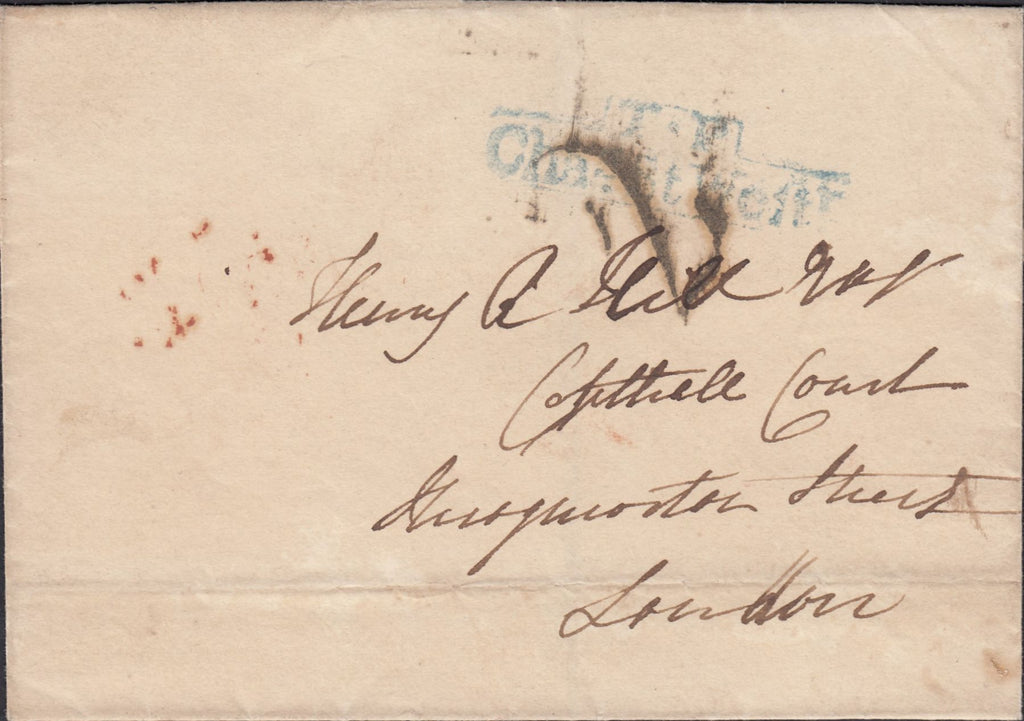 T.P
Henry R Hill Esqr
Copthall Court
Throgmorton Street
London